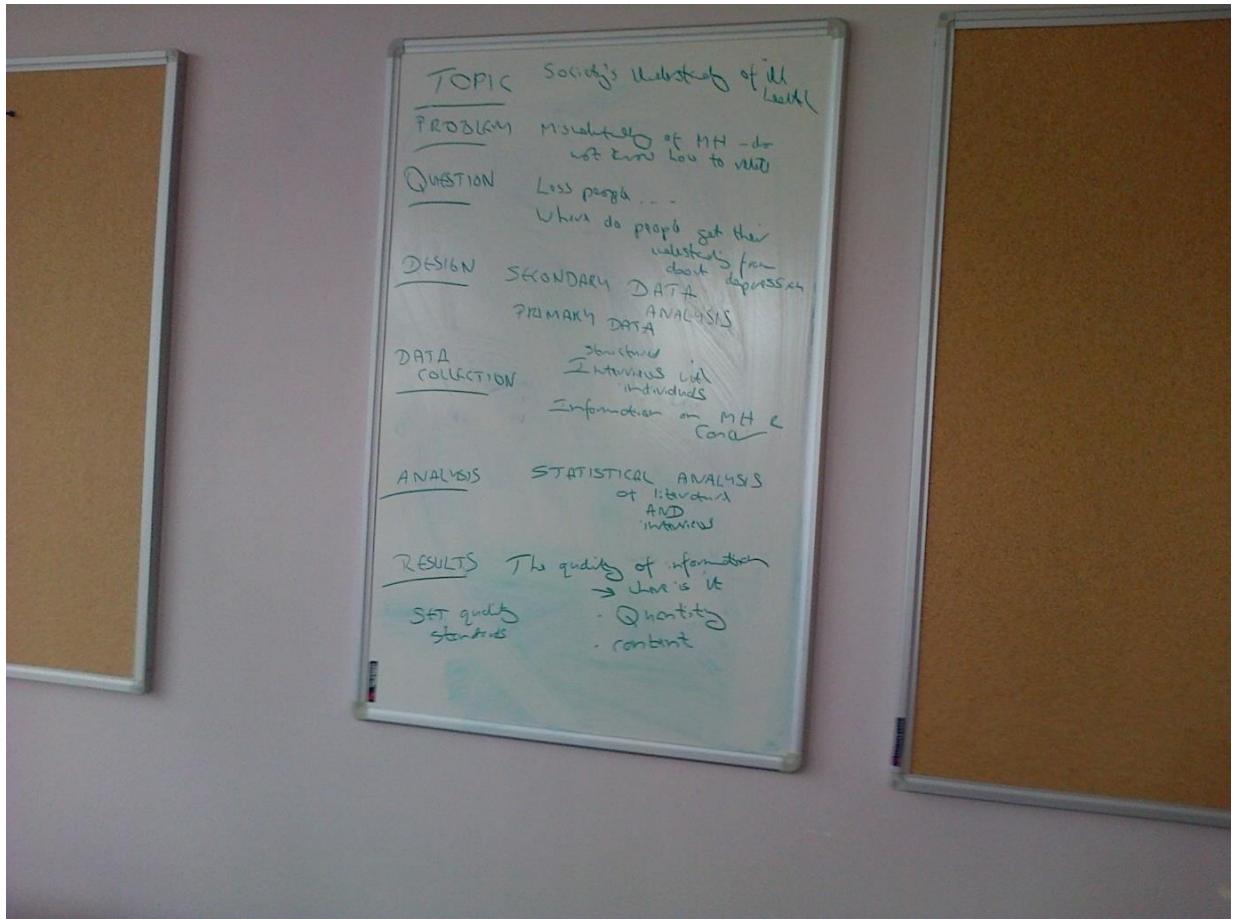 TOPIC Society's understanding of ill
health
PROBLEM Misunderstanding of MH - do
not know how to relate
QUESTION Loss people ....
Where do people get their
understanding from
about depression
DESIGN SECONDARY DATA
ANALYSIS
PRIMARY DATA
DATA
COLLECTION
structured
Interviews with
individuals
Information on MH &
ANALYSIS STATISTICAL ANALYSIS
of literature
AND
interviews
RESULTS The quality of information
→ where is it
SET quality
standards
- Quantity
- content